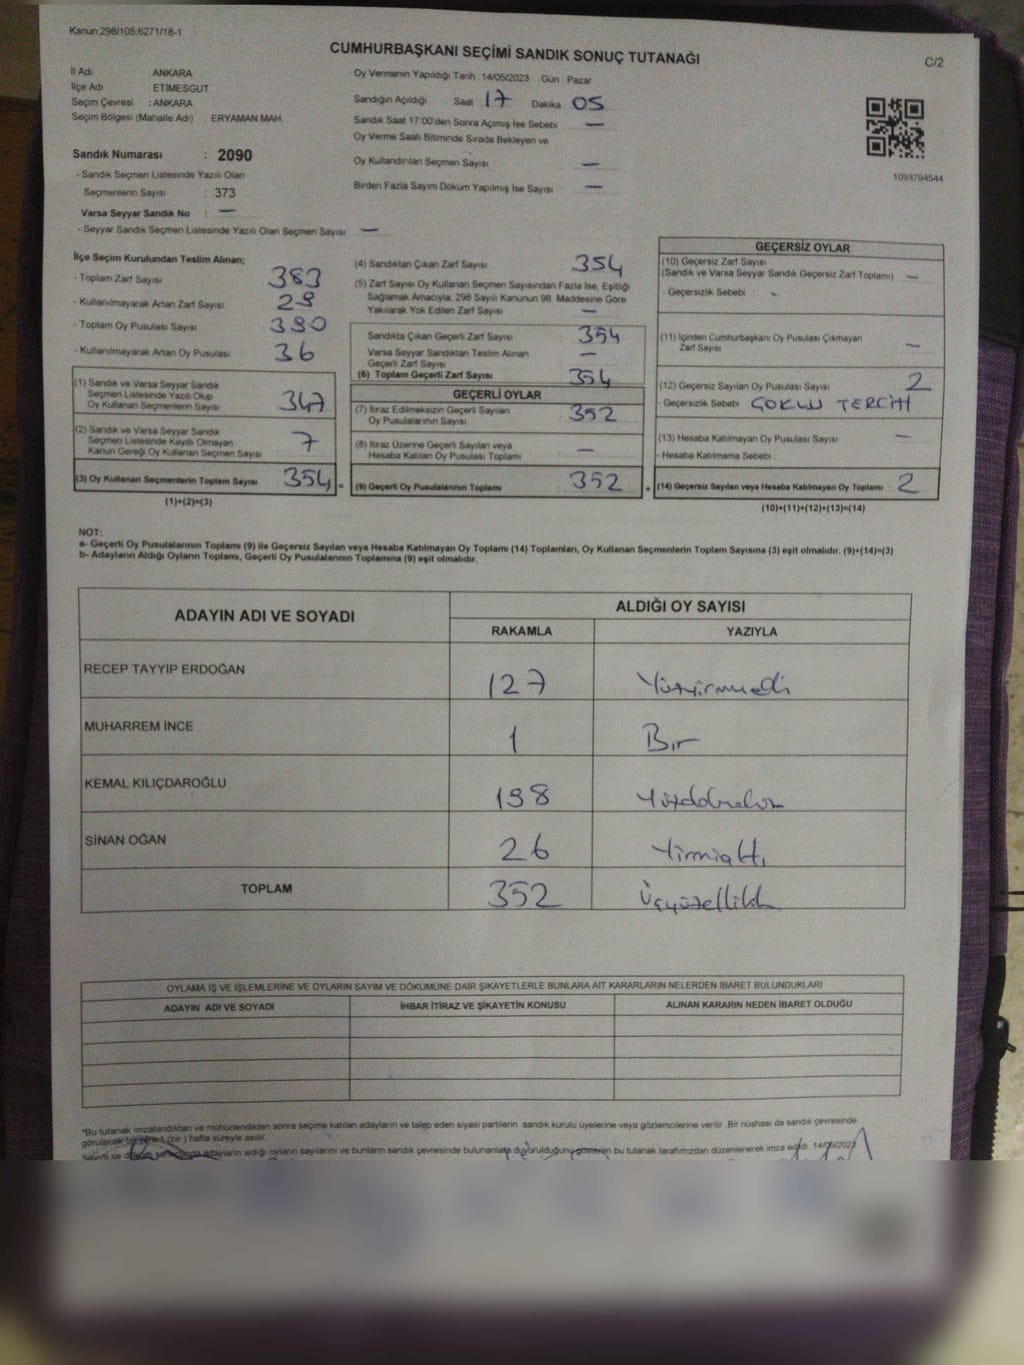 Kanun:298/105;6271/18-1
CUMHURBAŞKANI SEÇİMİ SANDIK SONUÇ TUTANAĞI
C/2
İl Adı ANKARA
İlçe Adı : ETİMESGUT
Seçim Çevresi : ANKARA
Seçim Bölgesi (Mahalle Adı) : ERYAMAN MAH.
Sandık Numarası : 2090
- Sandık Seçmen Listesinde Yazılı Olan
Seçmenlerin Sayısı : 373
Varsa Seyyar Sandık No : —
- Seyyar Sandık Seçmen Listesinde Yazılı Olan Seçmen Sayısı —
Oy Vermenin Yapıldığı Tarih : 14/05/2023 Gün : Pazar
Sandığın Açıldığı Saat 17 Dakika 05
Sandık Saat 17:00'den Sonra Açılmış İse Sebebi —
Oy Verme Saati Bitiminde Sırada Bekleyen ve
Oy Kullandırılan Seçmen Sayısı —
Birden Fazla Sayım Döküm Yapılmış İse Sayısı —
1093794544
İlçe Seçim Kurulundan Teslim Alınan;
- Toplam Zarf Sayısı 383
- Kullanılmayarak Artan Zarf Sayısı 29
- Toplam Oy Pusulası Sayısı 390
- Kullanılmayarak Artan Oy Pusulası 36
(1) Sandık ve Varsa Seyyar Sandık
Seçmen Listesinde Yazılı Olup
Oy Kullanan Seçmenlerin Sayısı 347
(2) Sandık ve Varsa Seyyar Sandık
Seçmen Listesinde Kayıtlı Olmayan
Kanun Gereği Oy Kullanan Seçmen Sayısı 7
(3) Oy Kullanan Seçmenlerin Toplam Sayısı 354 =
(1)+(2)=(3)
(4) Sandıktan Çıkan Zarf Sayısı 354
(5) Zarf Sayısı Oy Kullanan Seçmen Sayısından Fazla İse, Eşitliği
Sağlamak Amacıyla, 298 Sayılı Kanunun 98. Maddesine Göre
Yakılarak Yok Edilen Zarf Sayısı —
Sandıkta Çıkan Geçerli Zarf Sayısı 354
Varsa Seyyar Sandıktan Teslim Alınan
Geçerli Zarf Sayısı —
(6) Toplam Geçerli Zarf Sayısı 354
GEÇERLİ OYLAR
(7) İtiraz Edilmeksizin Geçerli Sayılan
Oy Pusulalarının Sayısı 352
(8) İtiraz Üzerine Geçerli Sayılan veya
Hesaba Katılan Oy Pusulası Toplamı —
(9) Geçerli Oy Pusulalarının Toplamı 352 +
GEÇERSİZ OYLAR
(10) Geçersiz Zarf Sayısı
(Sandık ve Varsa Seyyar Sandık Geçersiz Zarf Toplamı) —
- Geçersizlik Sebebi : -
(11) İçinden Cumhurbaşkanı Oy Pusulası Çıkmayan
Zarf Sayısı —
(12) Geçersiz Sayılan Oy Pusulası Sayısı 2
- Geçersizlik Sebebi ÇOKLU TERCİH
(13) Hesaba Katılmayan Oy Pusulası Sayısı —
- Hesaba Katılmama Sebebi :
(14) Geçersiz Sayılan veya Hesaba Katılmayan Oy Toplamı 2
(10)+(11)+(12)+(13)=(14)
NOT:
a- Geçerli Oy Pusulalarının Toplamı (9) ile Geçersiz Sayılan veya Hesaba Katılmayan Oy Toplamı (14) Toplamları, Oy Kullanan Seçmenlerin Toplam Sayısına (3) eşit olmalıdır. (9)+(14)=(3)
b- Adayların Aldığı Oyların Toplamı, Geçerli Oy Pusulalarının Toplamına (9) eşit olmalıdır.
ADAYIN ADI VE SOYADI
ALDIĞI OY SAYISI
RAKAMLA YAZIYLA
RECEP TAYYİP ERDOĞAN 127 Yüzyirmiyedi
MUHARREM İNCE 1 Bir
KEMAL KILIÇDAROĞLU 198 Yüzdoksansekiz
SİNAN OĞAN 26 Yirmialtı
TOPLAM 352 Üçyüzelliiki
OYLAMA İŞ VE İŞLEMLERİNE VE OYLARIN SAYIM VE DÖKÜMÜNE DAİR ŞİKAYETLERLE BUNLARA AİT KARARLARIN NELERDEN İBARET BULUNDUKLARI
ADAYIN ADI VE SOYADI İHBAR İTİRAZ VE ŞİKAYETİN KONUSU ALINAN KARARIN NEDEN İBARET OLDUĞU
*Bu tutanak imzalandıktan ve mühürlendikten sonra seçime katılan adayların ve talep eden siyasi partilerin sandık kurulu üyelerine veya gözlemcilerine verilir. Bir nüshası da sandık çevresinde
görülecek bir yere 1 (bir) hafta süreyle asılır.
Sayım ile döküm sonucunda adayların aldığı oyların sayılarını ve bunların sandık çevresinde bulunanlara duyurulduğunu gösteren bu tutanak tarafımızdan düzenlenerek imza edildi 14/05/2023